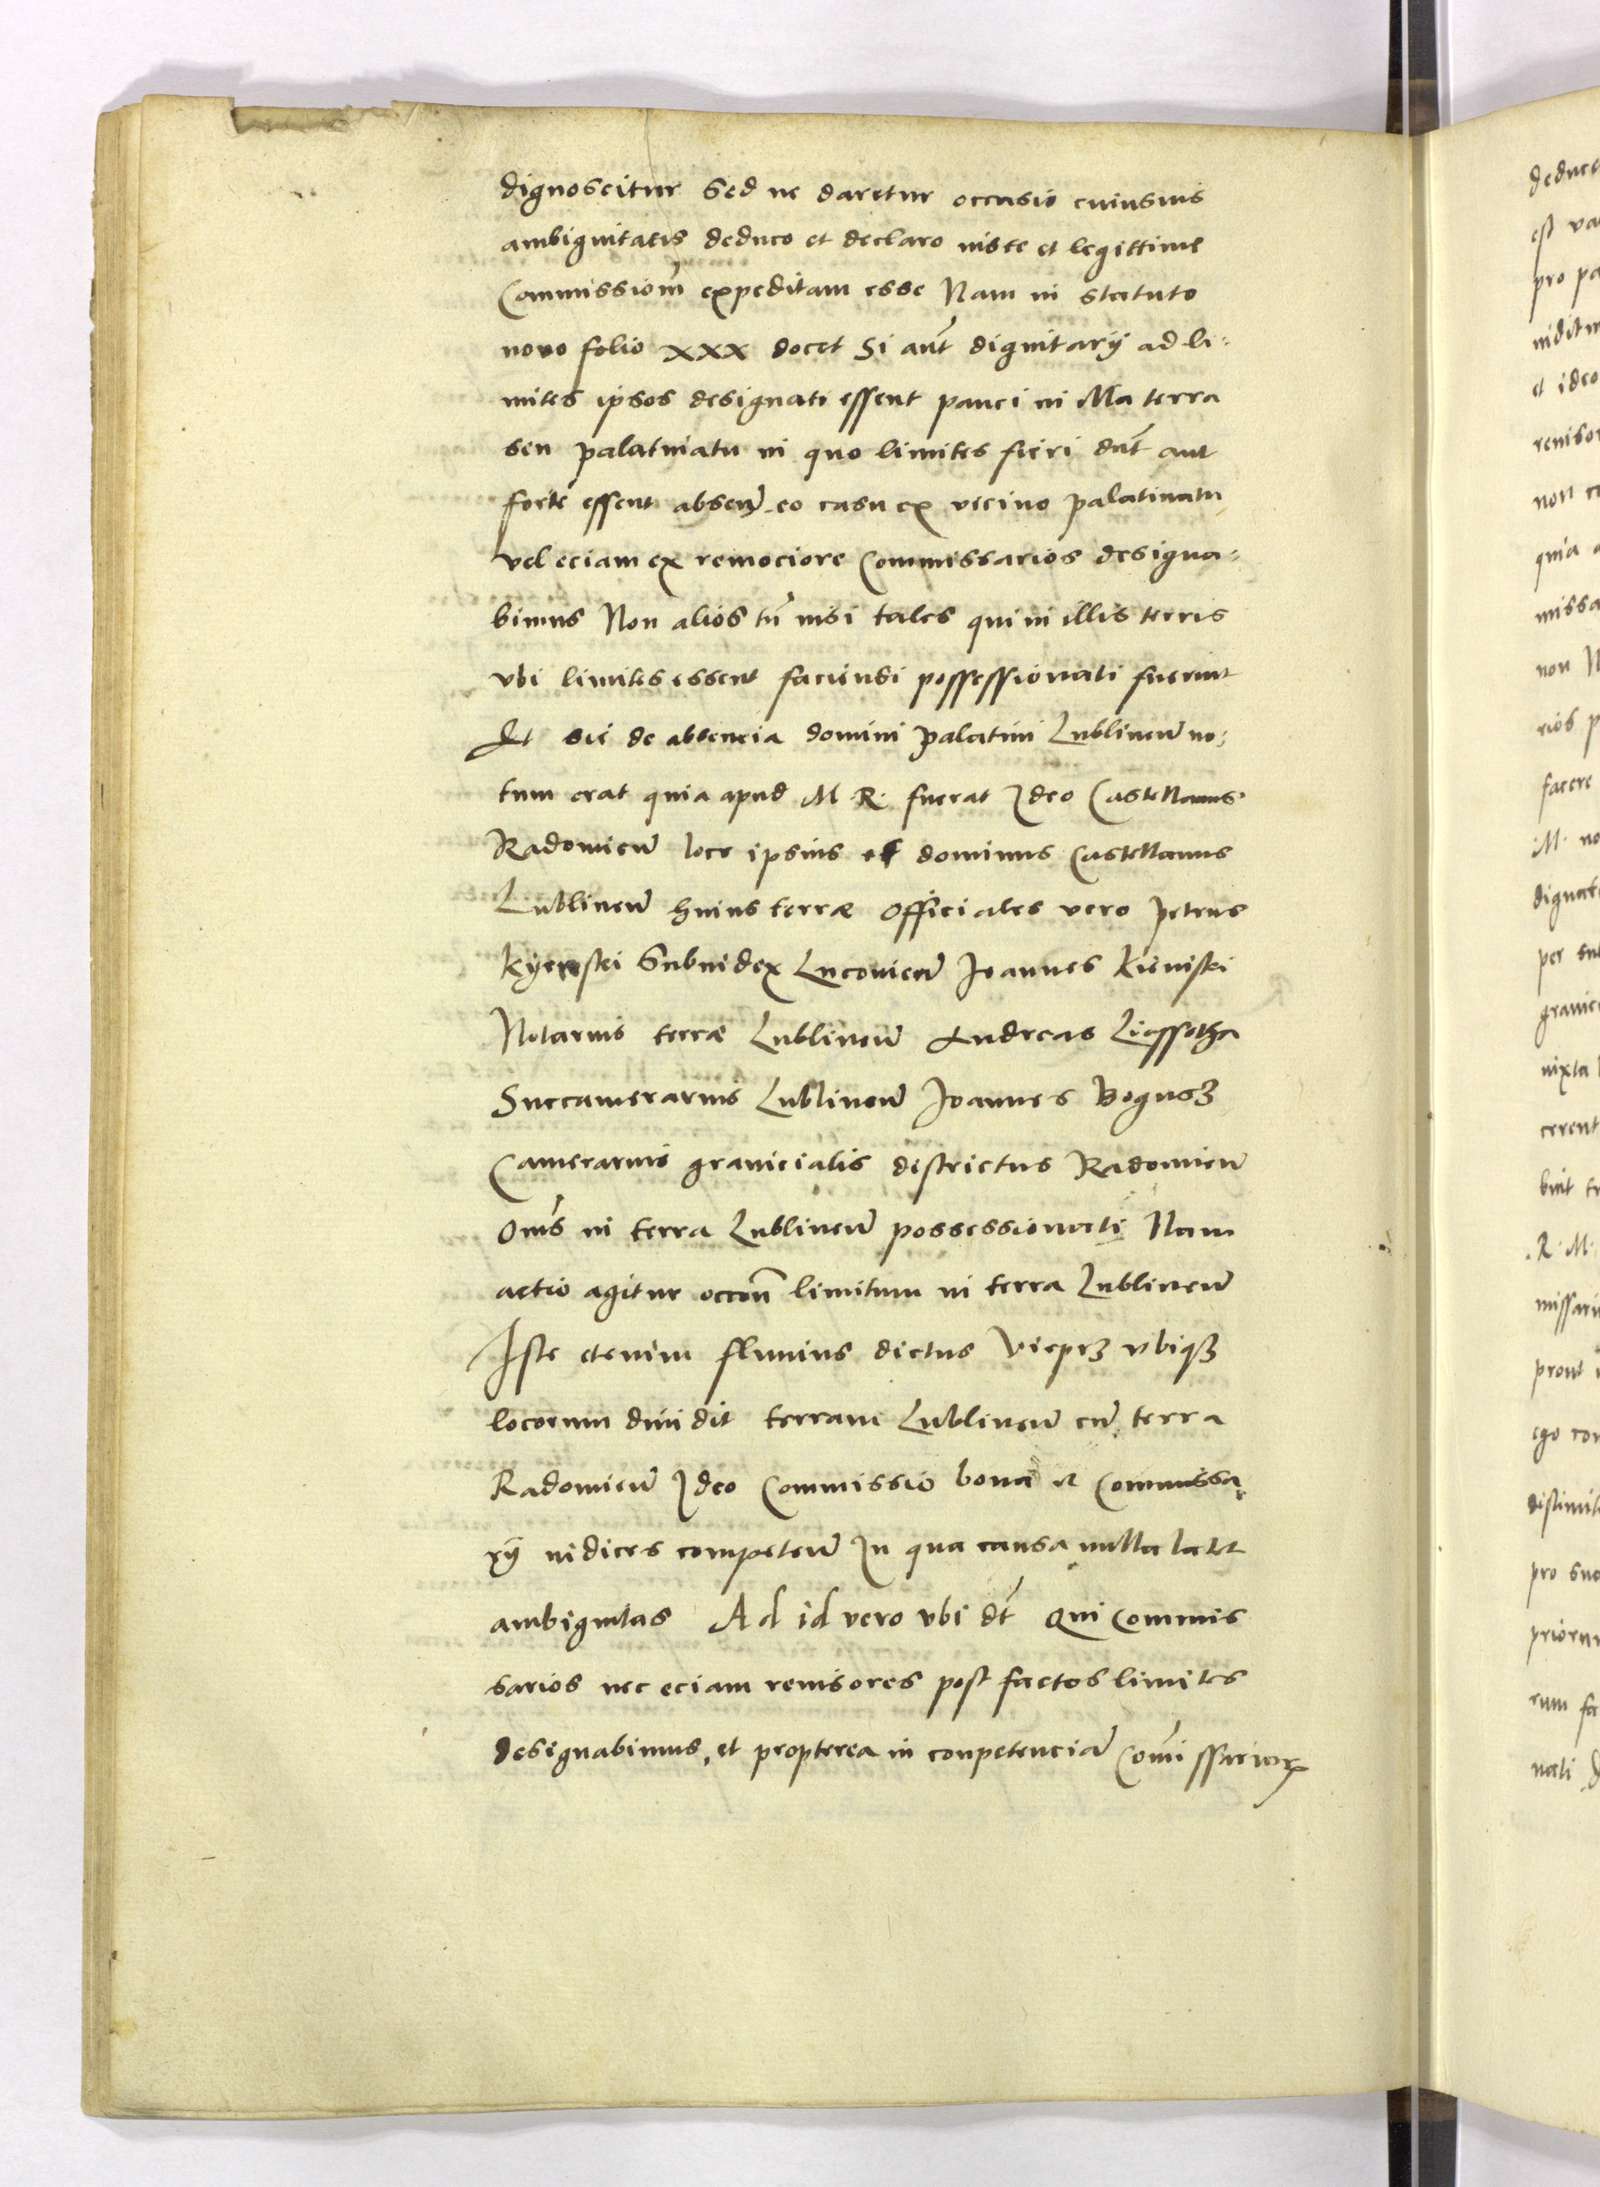 dignoscitur Sed ne daretur occasio cuiusuis
ambiguitatis deduco et declaro iuste et legittime
Commissionem̄ expeditam esse Nam in statuto
novo folio XXX docet Si aut̄ dignitarij ad li-
mites ipsos designati essent pauci in illa terra
seu palatinatu in quo limites fieri dn̄t aut
forte essent absen̄ eo casu ex vicino palatinatu
vel eciam ex remociore Commissarios designa-
bimus Non alios tn̄ nisi tales qui in illis terris
vbi limites essent faciendi possessionati fuerint
Et sic de absencia domini palatini Lublinen̄ no-
tum erat quia apud M R. fuerat Ideo Castellanus
Radomien̄ loco ipsius et dominus Castellanus
Lublinen̄ huius terræ officiales vero petrus
Subiudex Lucovien̄ Ioannes
Notarius terræ Lublinen̄ Andreas
Succamerarius Lublinen̄ Ioannes Bogusz
Camerarius granicialis districtus Radomien̄
Om̄s in terra Lublinen̄ possessionati Nam
actio agitur occōn limitum in terra Lublinen̄
Iste etenim fluuius dictus Vieprz vbiqz
locorum diuidit terram Lublinen̄ cū terra
Radomien̄ Ideo Commissio bona et Commissa-
rij iudices competen̄ In qua causa nulla latet
ambiguitas Ad id vero vbi dt̄ Qui Commis
sarios nec eciam reuisores post factos limites
designabimus, et propterea in conpetenciā Com̄issarior̄
deduce
est va
pro pa
et ideo
reuisor
non co
quia a
missa
non N
rios p
facere
.M. no
dignat
per su
granic
iuxta l
cerent
.R. M.
missari
prout i
ego con
pro suo
priorum
rum fa
nati